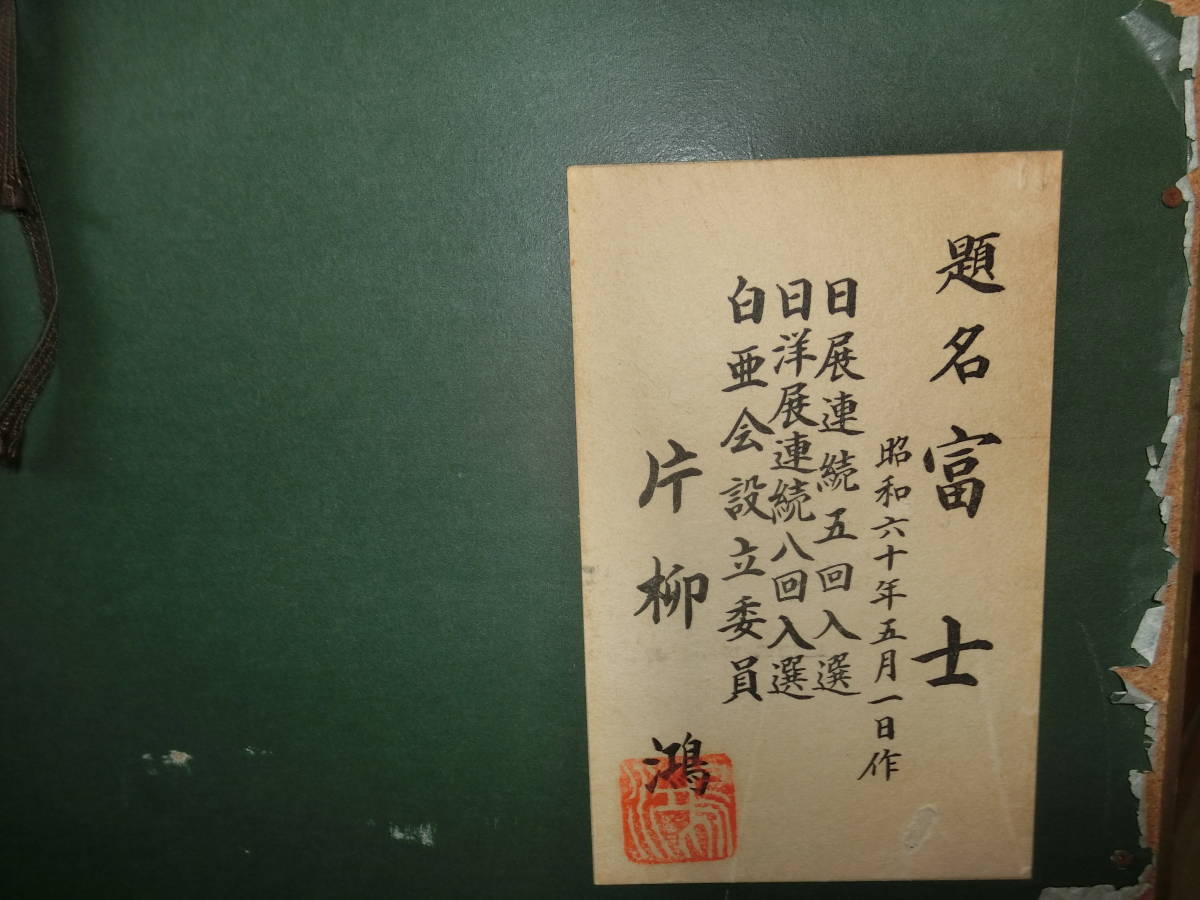 題名富士
昭和六十年五月一日作
日展連続五回入選
日洋展連続八回入選
白亜会設立委員
片柳鴻